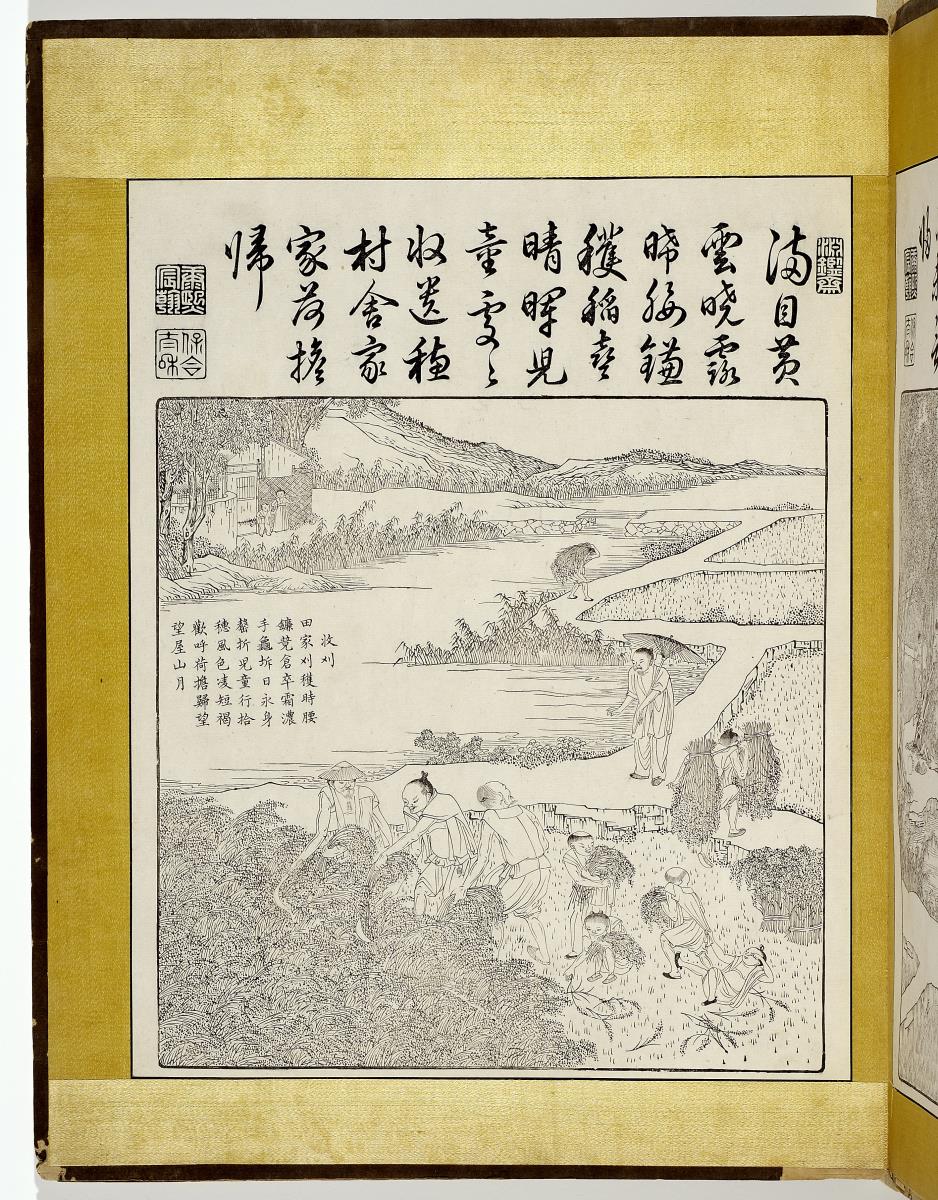 淵鑒齋
滿目黃
雲曉露
晞腰鎌
穫稻喜
晴暉見
童處〻
收遺穗
村舍家
家荷擔
歸
康熙宸翰
保合太和
收刈
田家刈穫時腰
鐮競倉卒霜濃
手龜坼日永身
罄折兒童行拾
穗風色凌短褐
歡呼荷擔歸望
望屋山月